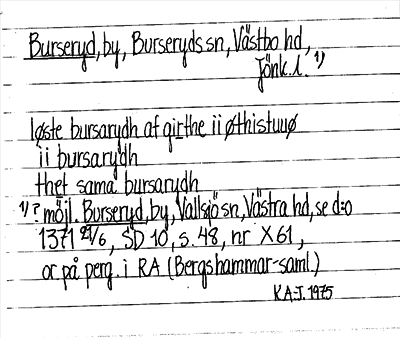 Burseryd, by, Burseryds sn, Västbo hd,
Jönk. l. 1)
løste bursarydh af girthe ii øthistuuø
ii bursarydh
thet sama bursarydh
1) ? möjl. Burseryd, by, Vallsjö sn, Västra hd, se d:o
1371 29/6, SD 10, s. 48, nr X 61,
or på perg. i RA (Bergshammar-saml.)
K.A:J. 1975